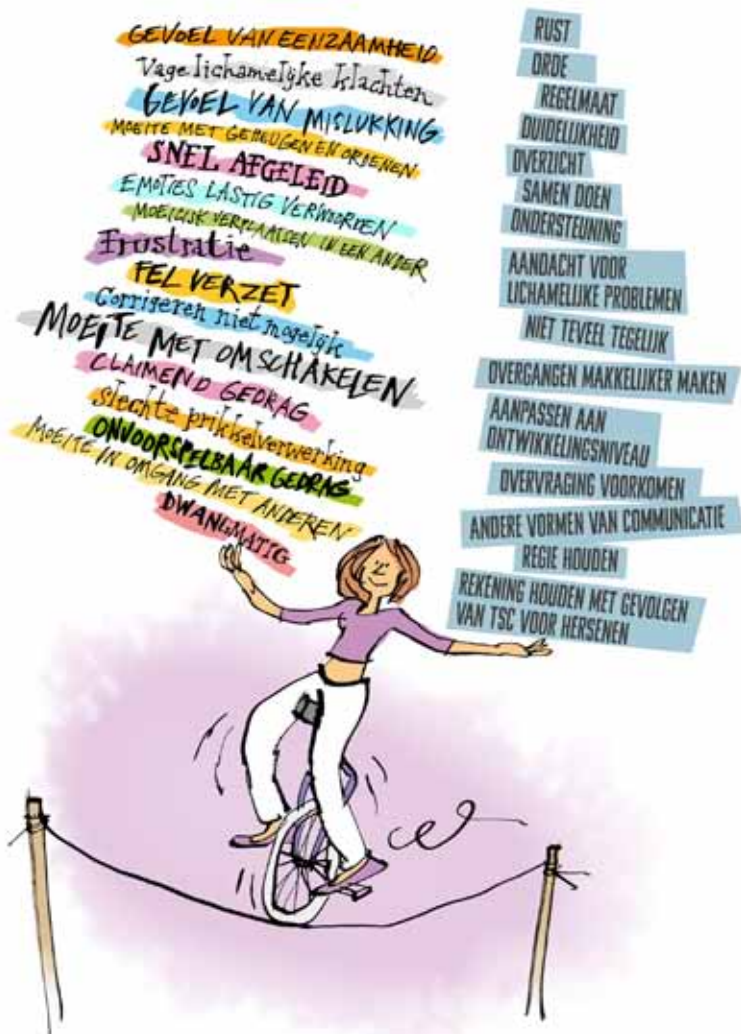 GEVOEL VAN EENZAAMHEID
Vage lichamelijke klachten
GEVOEL VAN MISLUKKING
MOEITE MET GEHEUGEN EN ORDENEN
SNEL AFGELEID
EMOTIES LASTIG VERWOORDEN
MOEILIJK VERPLAATSEN IN EEN ANDER
Frustratie
FEL VERZET
Corrigeren niet mogelijk
MOEITE MET OMSCHAKELEN
CLAIMEND GEDRAG
slechte prikkelverwerking
ONVOORSPELBAAR GEDRAG
MOEITE IN OMGANG MET ANDEREN
DWANGMATIG
RUST
ORDE
REGELMAAT
DUIDELIJKHEID
OVERZICHT
SAMEN DOEN
ONDERSTEUNING
AANDACHT VOOR
LICHAMELIJKE PROBLEMEN
NIET TEVEEL TEGELIJK
OVERGANGEN MAKKELIJKER MAKEN
AANPASSEN AAN
ONTWIKKELINGSNIVEAU
OVERVRAGING VOORKOMEN
ANDERE VORMEN VAN COMMUNICATIE
REGIE HOUDEN
REKENING HOUDEN MET GEVOLGEN
VAN TSC VOOR HERSENEN